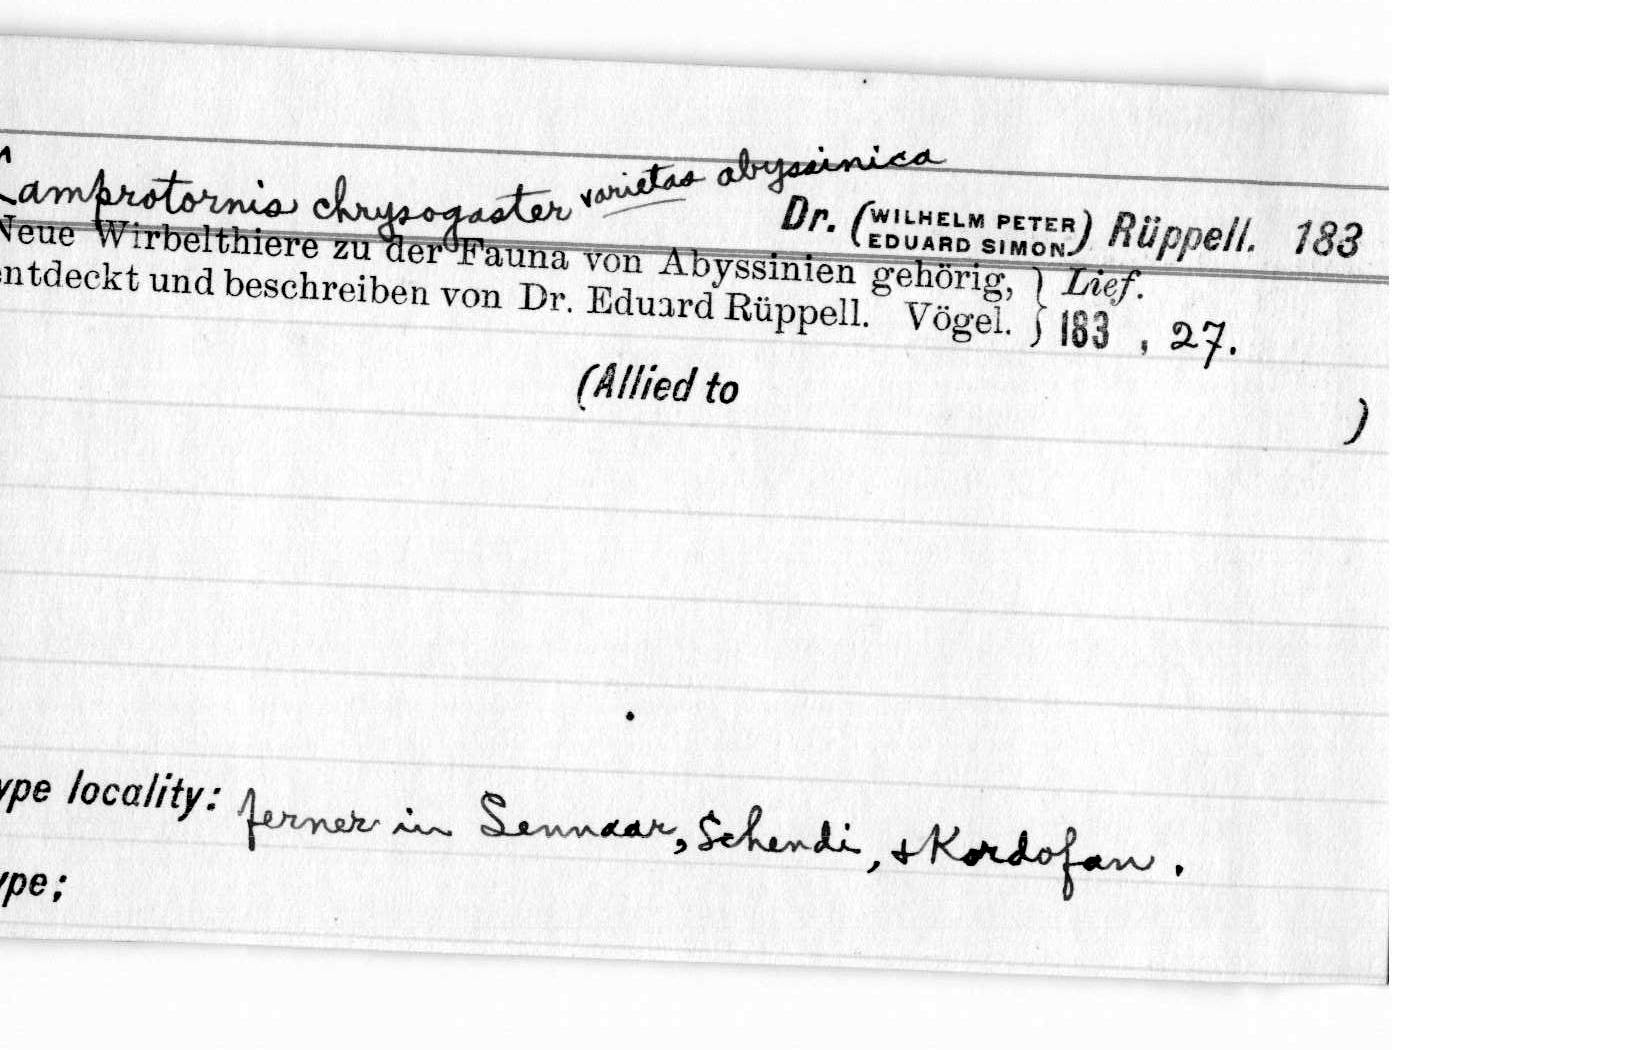 Lamprotornis chrysogaster varietas abyssinica
Dr. (WILHELM PETER EDUARD SIMON) Rüppell. 183
Neue Wirbelthiere zu der Fauna von Abyssinien gehörig, } Lief.
entdeckt und beschreiben von Dr. Eduard Rüppell. Vögel. } 183 , 27.
(Allied to )
ype locality: ferner in Sennaar, Schendi, & Kordofan.
ype;